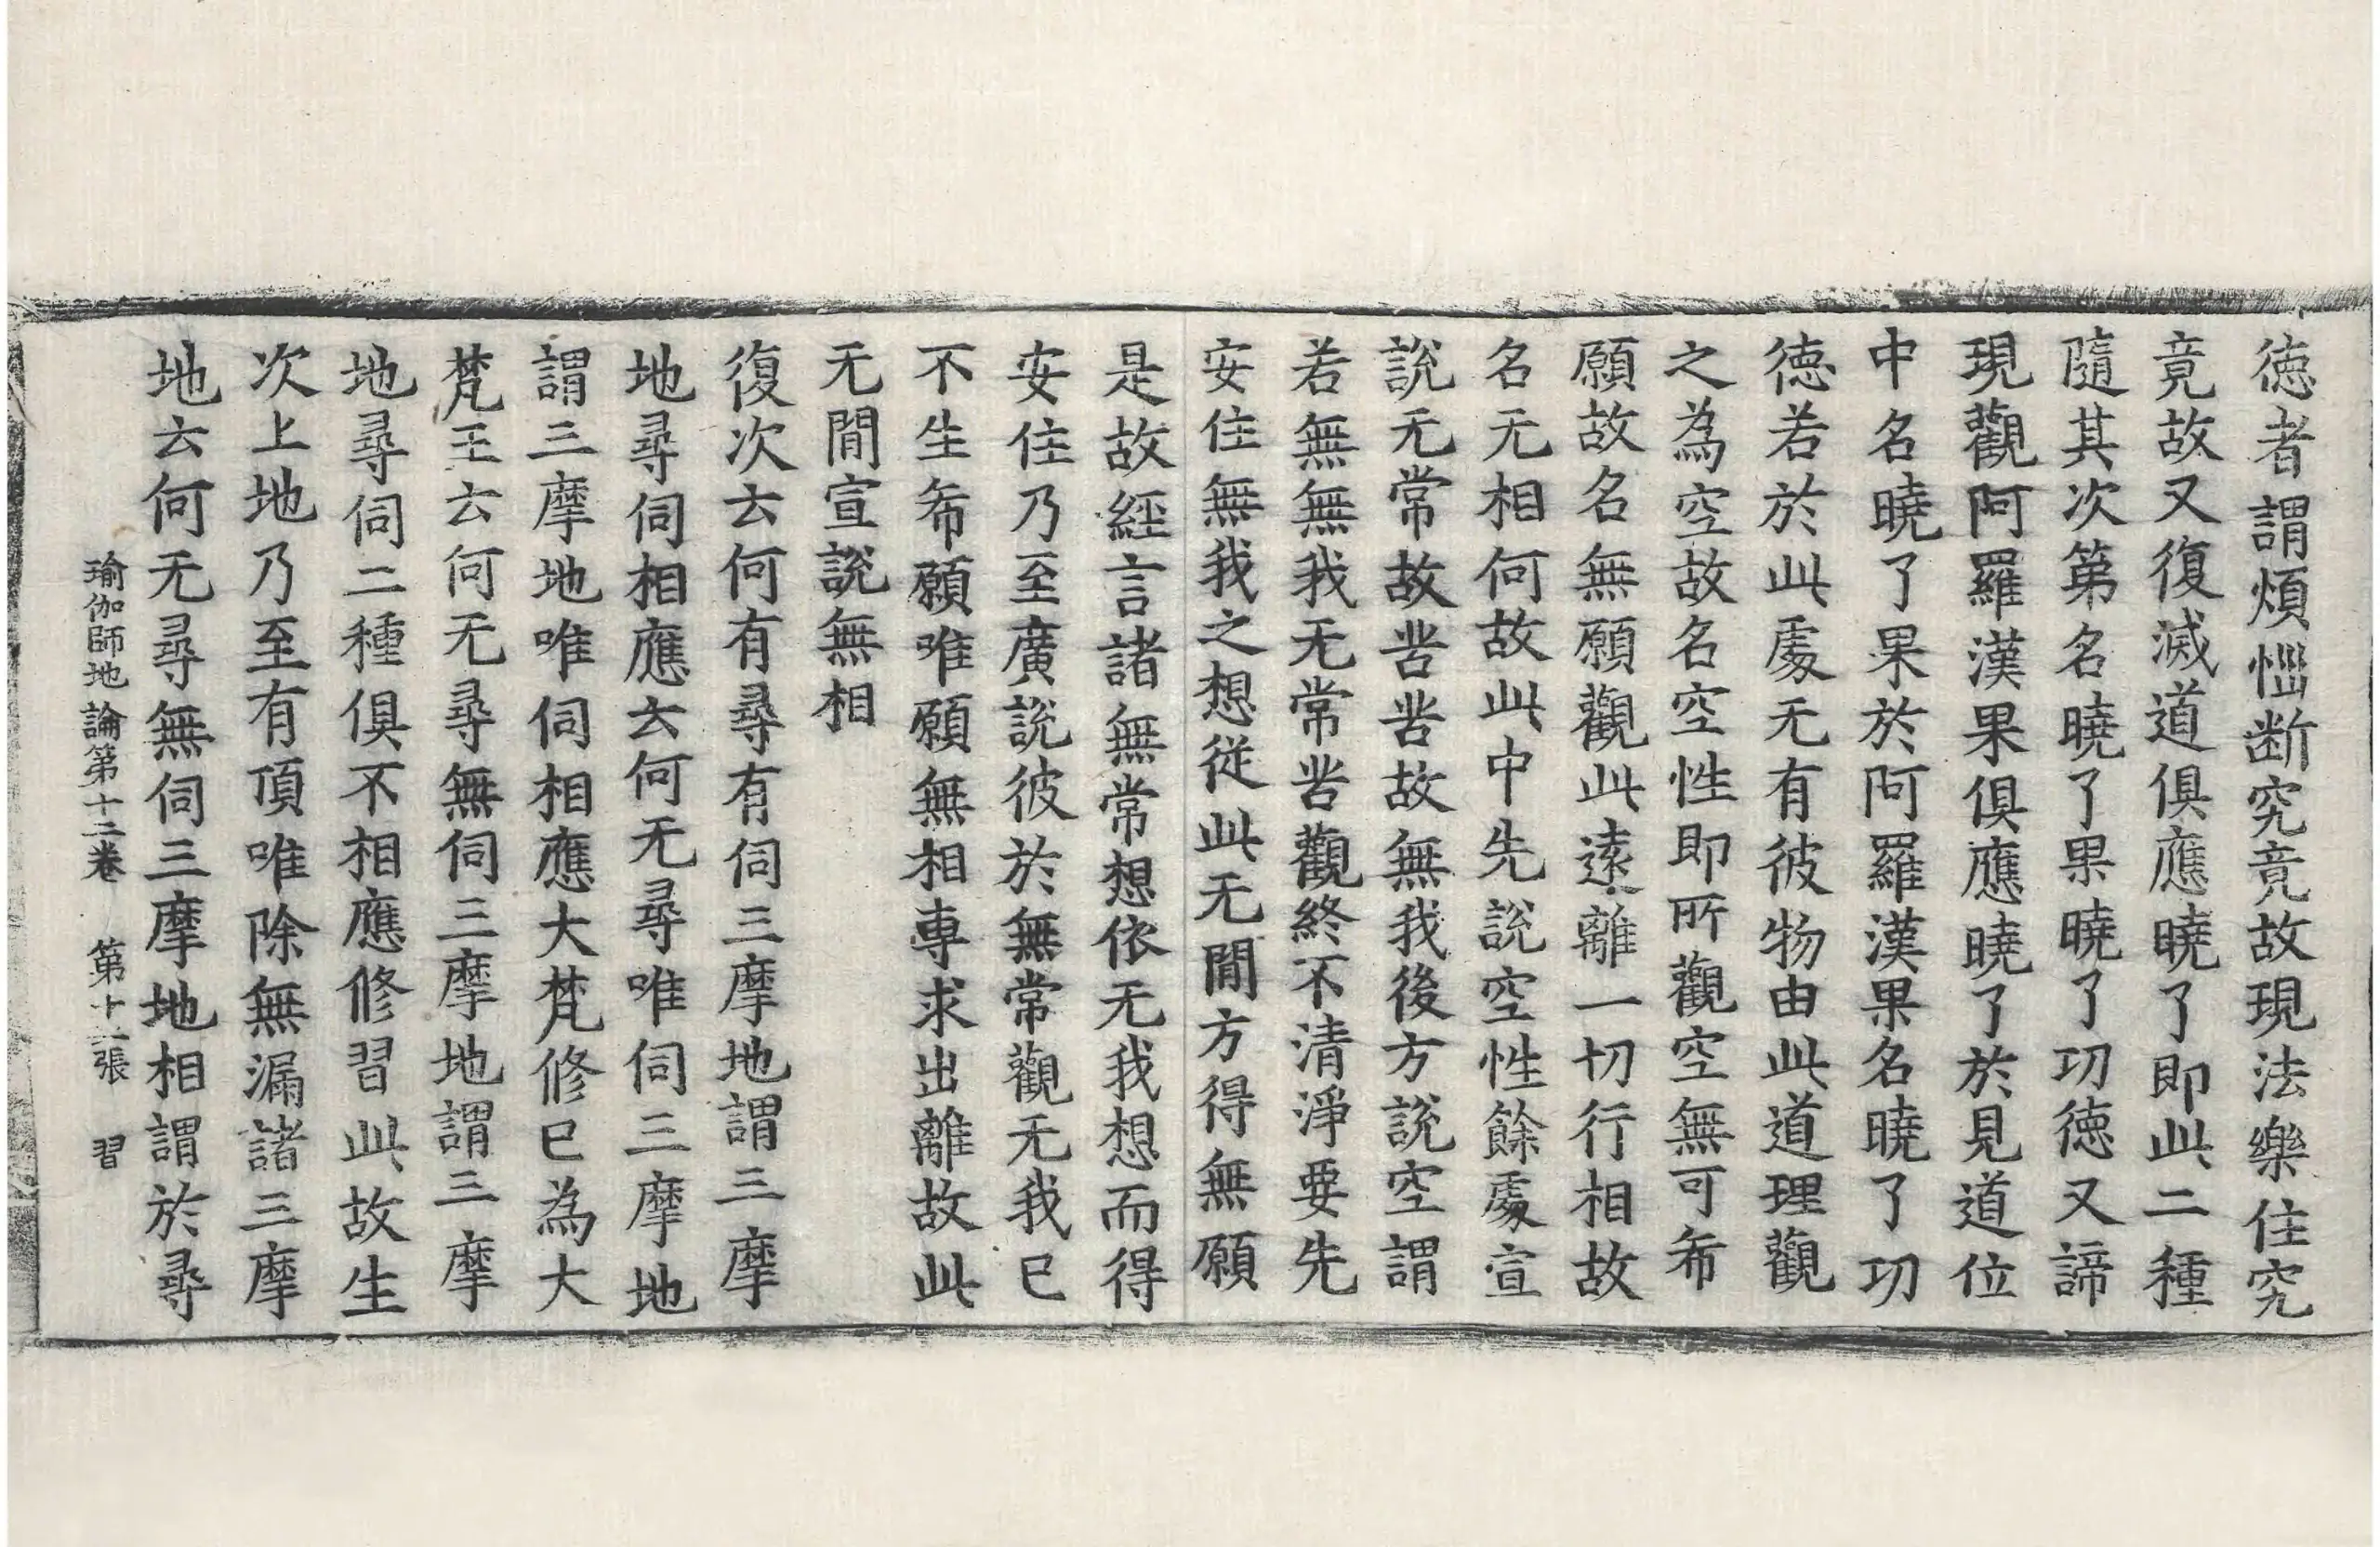 徳者謂煩惱断究竟故現法樂住究
竟故又復滅道俱應曉了即此二種
隨其次第名曉了果曉了功徳又諦
現觀阿羅漢果俱應曉了於見道位
中名曉了果於阿羅漢果名曉了功
徳若於此處无有彼物由此道理觀
之為空故名空性即所觀空無可希
願故名無願觀此遠離一切行相故
名无相何故此中先說空性餘處宣
說无常故苦苦故無我後方說空謂
若無無我无常苦觀終不清淨要先
安住無我之想從此无閒方得無願
是故經言諸無常想依无我想而得
安住乃至廣說彼於無常觀无我已
不生希願唯願無相專求出離故此
无閒宣說無相
復次云何有尋有伺三摩地謂三摩
地尋伺相應云何无尋唯伺三摩地
謂三摩地唯伺相應大梵修已為大
梵王云何无尋無伺三摩地謂三摩
地尋伺二種俱不相應修習此故生
次上地乃至有頂唯除無漏諸三摩
地云何无尋無伺三摩地相謂於尋
瑜伽師地論第十二卷 第十二張 習